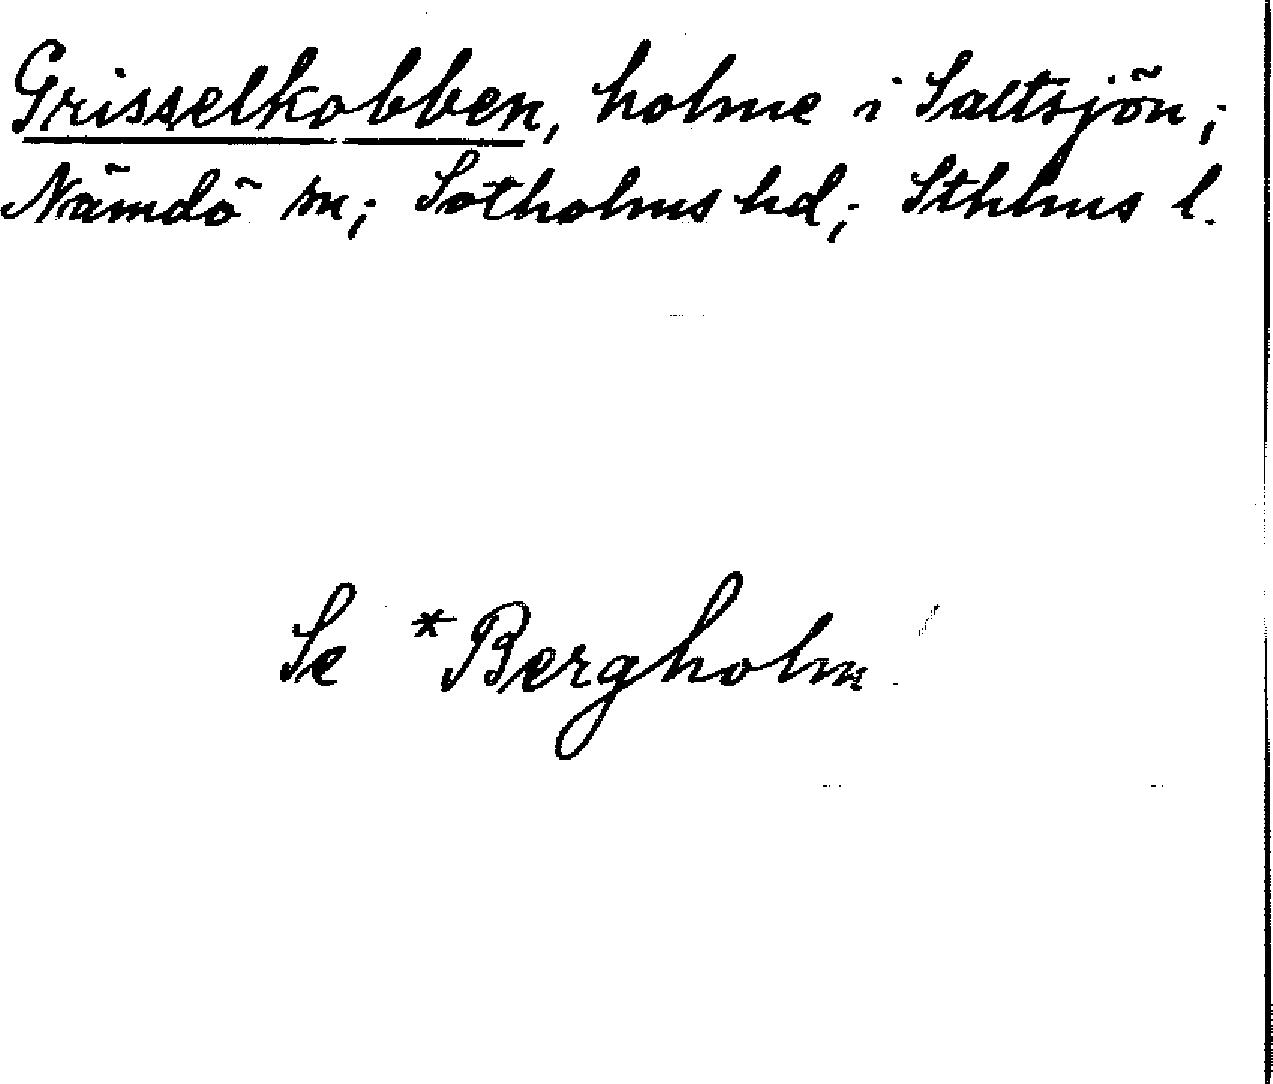 Grisselkobben, holme i Saltsjön;
Nämdö sn; Sotholms hd; Sthlms l.
Se *Bergholm